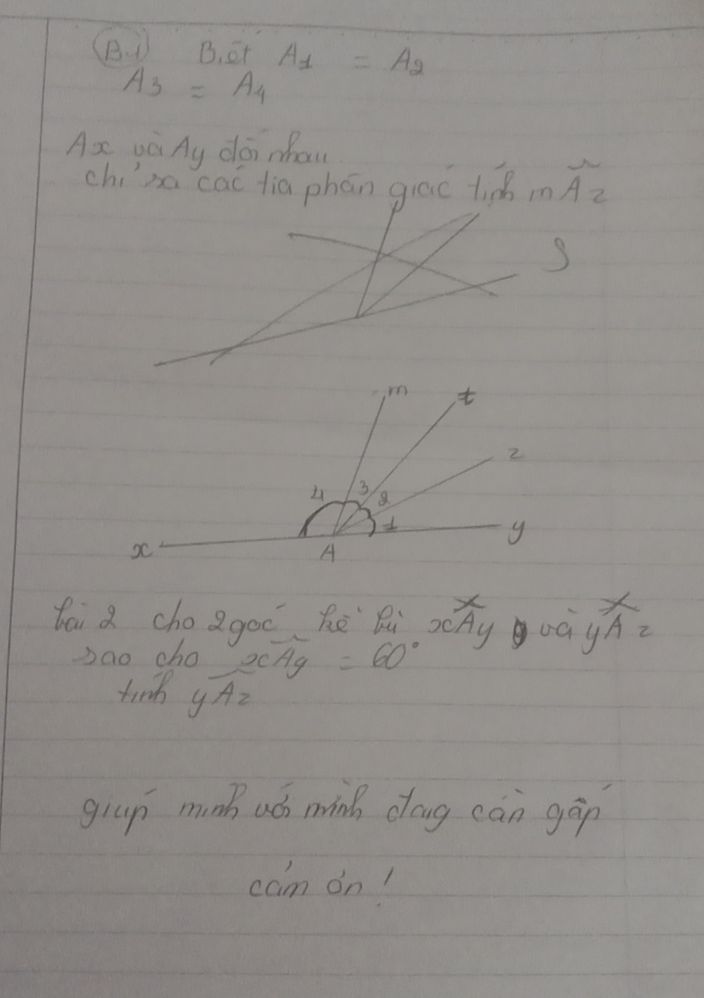 B.1 Biết A1 = A2
A3 = A4
Ax và Ay đối nhau
chỉ ra các tia phân giác tính mAz
m t
z
4 3 2
1
x A y
bài 2 cho 2 góc kề bù xAy và yAz
sao cho xAy = 60°
tính yAz
giúp mình với mình đag cần gấp
cảm ơn!